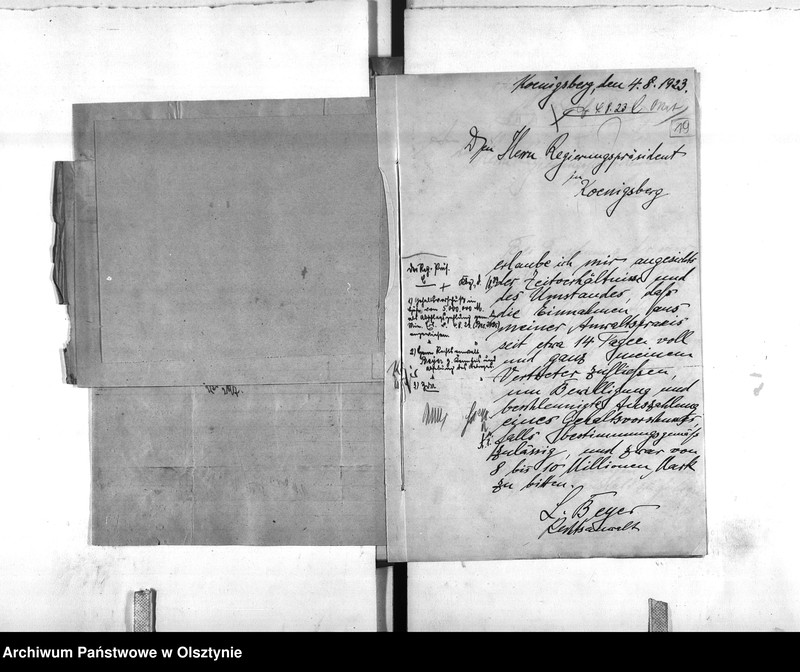 Koenigsberg, den 4.8.1923.
4.8.23
19
Den Herrn Regierungspräsident
zu
Koenigsberg
erlaube ich mir angesichts
der Zeitverhältnisse und
des Umstandes, daß
die Einnahmen aus
meiner Anwaltspraxis
seit etwa 14 Tagen voll
und ganz meinem
Vertreter zufließen,
um Bewilligung und
beschleunigte Auszahlung
eines Gehaltsvorschusses
falls bestimmungsgemäß
zulässig, und zwar von
8 bis 10 Millionen Mark
zu bitten.
L. Beyer
Rechtsanwalt
Der Reg. Präs.
1) Gehaltsvorschuß in
Höhe von 5.000.000 M.
anzuweisen
2) Herrn Rechtsanwalt
Beyer
3) Zda
Archiwum Państwowe w Olsztynie